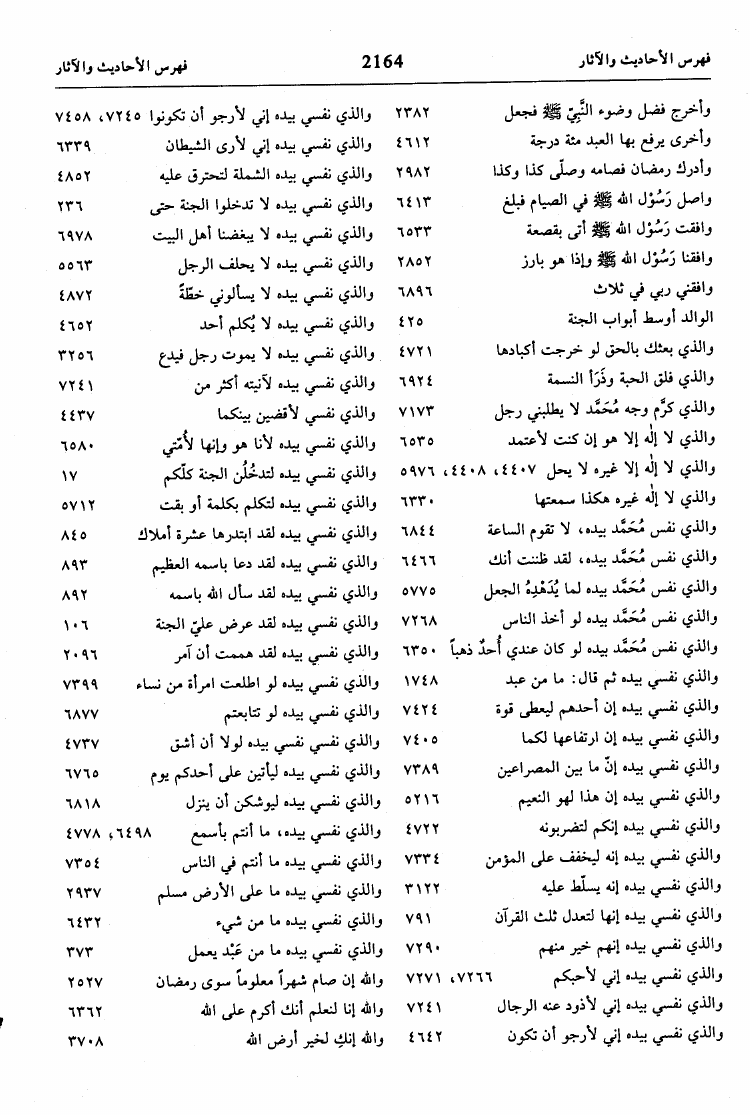 فهرس الأحاديث والآثار
2164
فهرس الأحاديث والآثار
وأخرج فضل وضوء النَّبِيّ ﷺ فجعل ٢٣٨٢
وأخرى يرفع بها العبد مئة درجة ٤٦١٢
وأدرك رمضان فصامه وصلّى كذا وكذا ٢٩٨٢
واصل رَسُوْل الله ﷺ في الصيام فبلغ ٦٤١٣
وافقت رَسُوْل الله ﷺ أتى بقصعة ٦٥٣٣
وافقنا رَسُوْل الله ﷺ وإذا هو بارز ٢٨٥٢
وافقني ربي في ثلاث ٦٨٩٦
الوالد أوسط أبواب الجنة ٤٢٥
والذي بعثك بالحق لو خرجت أكبادها ٤٧٢١
والذي فلق الحبة وذَرَأ النسمة ٦٩٢٤
والذي كرَّم وجه مُحَمَّد لا يطلبني رجل ٧١٧٣
والذي لا إله إلا هو إن كنت لأعتمد ٦٥٣٥
والذي لا إله إلا غيره لا يحل ٤٤٠٧، ٤٤٠٨، ٥٩٧٦
والذي لا إله غيره هكذا سمعتها ٦٣٣٠
والذي نفس مُحَمَّد بيده، لا تقوم الساعة ٦٨٤٤
والذي نفس مُحَمَّد بيده، لقد ظننت أنك ٦٤٦٦
والذي نفس مُحَمَّد بيده لما يُدَهْدِهُ الجعل ٥٧٧٥
والذي نفس مُحَمَّد بيده لو أخذ الناس ٧٢٦٨
والذي نفس مُحَمَّد بيده لو كان عندي أُحدٌ ذهباً ٦٣٥٠
والذي نفسي بيده ثم قال: ما من عبد ١٧٤٨
والذي نفسي بيده إن أحدهم ليعطى قوة ٧٤٢٤
والذي نفسي بيده إن ارتفاعها لكما ٧٤٠٥
والذي نفسي بيده إنّ ما بين المصراعين ٧٣٨٩
والذي نفسي بيده إن هذا لهو النعيم ٥٢١٦
والذي نفسي بيده إنكم لتضربونه ٤٧٢٢
والذي نفسي بيده إنه ليخفف على المؤمن ٧٣٣٤
والذي نفسي بيده إنه يسلّط عليه ٣١٢٢
والذي نفسي بيده إنها لتعدل ثلث القرآن ٧٩١
والذي نفسي بيده إنهم خير منهم ٧٢٩٠
والذي نفسي بيده إني لأحبكم ٧٢٦٦، ٧٢٧١
والذي نفسي بيده إني لأذود عنه الرجال ٧٢٤١
والذي نفسي بيده إني لأرجو أن تكون ٤٦٤٢
والذي نفسي بيده إني لأرجو أن تكونوا ٧٢٤٥، ٧٤٥٨
والذي نفسي بيده إني لأرى الشيطان ٦٣٣٩
والذي نفسي بيده الشملة لتحترق عليه ٤٨٥٢
والذي نفسي بيده لا تدخلوا الجنة حتى ٢٣٦
والذي نفسي بيده لا يبغضنا أهل البيت ٦٩٧٨
والذي نفسي بيده لا يحلف الرجل ٥٥٦٣
والذي نفسي بيده لا يسألوني خطّةً ٤٨٧٢
والذي نفسي بيده لا يُكلم أحد ٤٦٥٢
والذي نفسي بيده لا يموت رجل فيدع ٣٢٥٦
والذي نفسي بيده لآنيته أكثر من ٧٢٤١
والذي نفسي لأقضين بينكما ٤٤٣٧
والذي نفسي بيده لأنا هو وإنها لأُمّتي ٦٥٨٠
والذي نفسي بيده لتدخُلُن الجنة كلّكم ١٧
والذي نفسي بيده لتكلم بكلمة أو بقت ٥٧١٢
والذي نفسي بيده لقد ابتدرها عشرة أملاك ٨٤٥
والذي نفسي بيده لقد دعا باسمه العظيم ٨٩٣
والذي نفسي بيده لقد سأل الله باسمه ٨٩٢
والذي نفسي بيده لقد عرض عليّ الجنة ١٠٦
والذي نفسي بيده لقد هممت أن آمر ٢٠٩٦
والذي نفسي بيده لو اطلعت امرأة من نساء ٧٣٩٩
والذي نفسي بيده لو تتابعتم ٦٨٧٧
والذي نفسي نفسي بيده لولا أن أشق ٤٧٣٧
والذي نفسي بيده ليأتين على أحدكم يوم ٦٧٦٥
والذي نفسي بيده ليوشكن أن ينزل ٦٨١٨
والذي نفسي بيده، ما أنتم بأسمع ٦٤٩٨، ٤٧٧٨
والذي نفسي بيده ما أنتم في الناس ٧٣٥٤
والذي نفسي بيده ما على الأرض مسلم ٢٩٣٧
والذي نفسي بيده ما من شيء ٦٤٣٢
والذي نفسي بيده ما من عَبْد يعمل ٣٧٣
والله إن صام شهراً معلوماً سوى رمضان ٢٥٢٧
والله إنا لنعلم أنك أكرم على الله ٦٣٦٢
والله إنكِ لخير أرض الله ٣٧٠٨